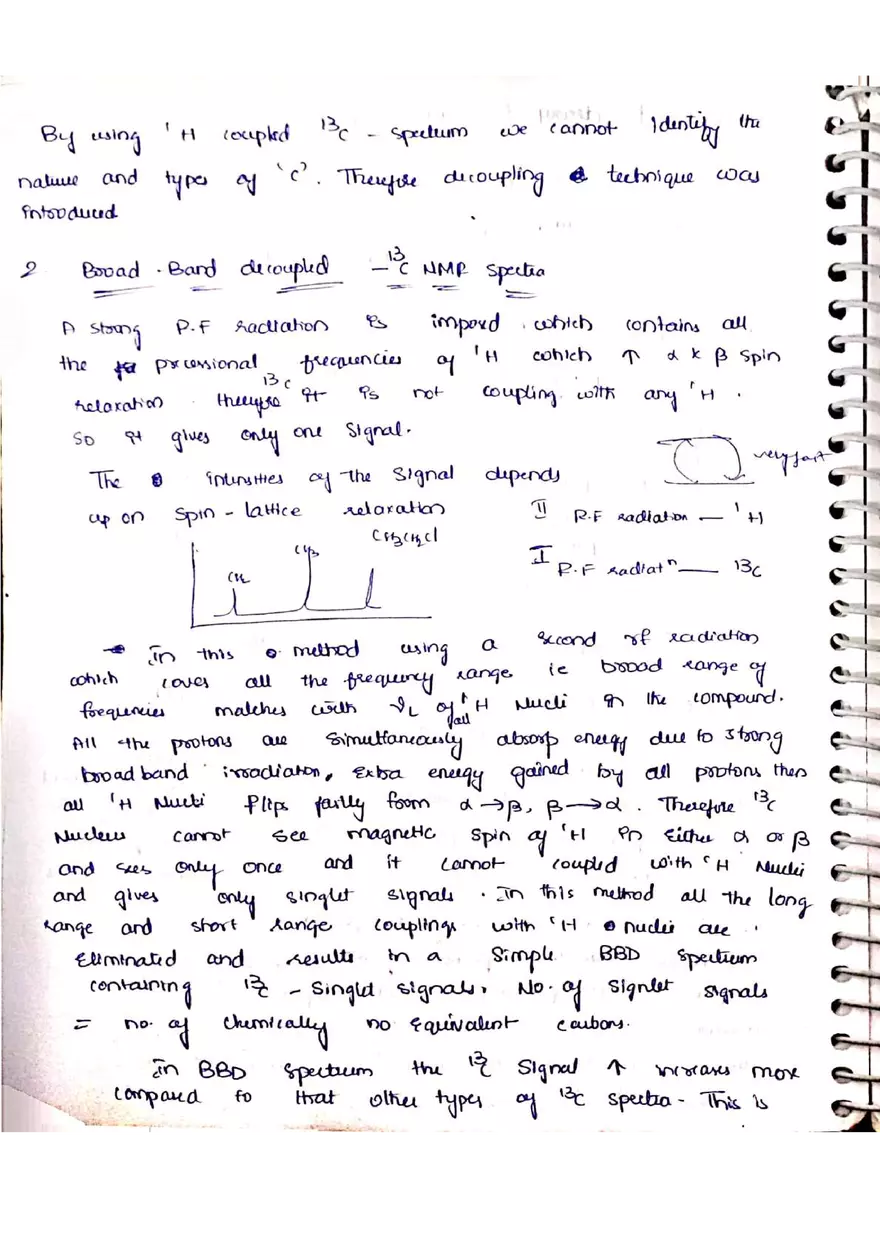 By using ¹H coupled ¹³C - spectrum we cannot Identify the
nature and types of 'C'. Therefore decoupling technique was
introduced
2 Broad - Band decoupled - ¹³C NMR spectra
A strong R.F radiation is imposed which contains all
the precessional frequencies of ¹H which ↑ α & β spin
relaxation . therefore ¹³C it is not coupling with any ¹H .
So it gives only one signal.
very fast
The intensities of the signal depends
up on spin - lattice relaxation
II R.F radiation — ¹H
CH3CH2Cl
CH3
CH2
I R.F radiatⁿ — 13C
→ In this method using a second rf radiation
which covers all the frequency range ie broad range of
frequencies matches with νL of all ¹H Nuclei in the compound.
All the protons are simultaneously absorp energy due to strong
broad band irradiaton, Extra energy gained by all protons then
all ¹H Nuclei flips fastly from α → β, β → α . Therefore ¹³C
Nucleus cannot see magnetic spin of ¹H in either α or β
and sees only once and it cannot coupled with ¹H Nuclei
and gives only singlet signals . In this method all the long
range and short range couplings with ¹H nuclei are
Eliminated and results in a simple BBD spectrum
containing ¹³C - singlet signals. No. of signlet signals
= no. of chemically no equivalent carbons.
In BBD spectrum the ¹³C signal ↑ increases more
compared to that other types of ¹³C spectra - This is